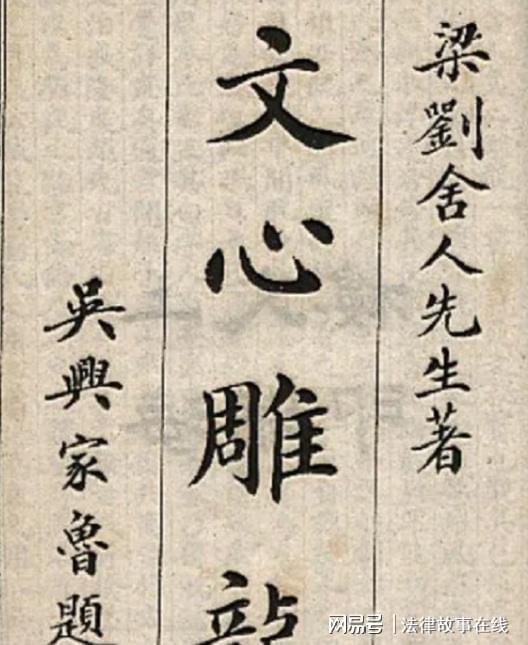 梁劉舍人先生著
文心雕龍
吳興家魯題
网易号 | 法律故事在线